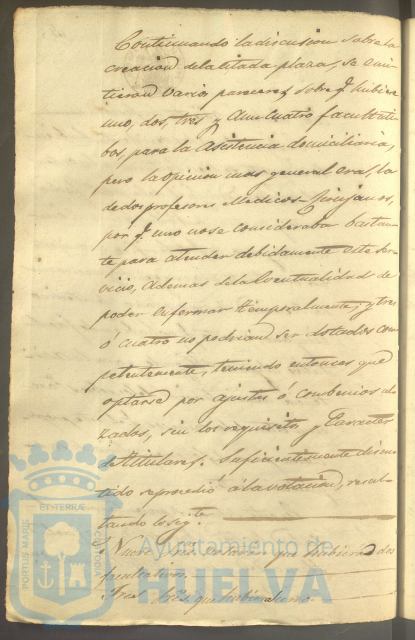 Continuando la discusion sobre la
creacion de la citada plaza, se emi
tieron varios pareceres sobre q.e hubiera
uno, dos, tres y aun cuatro facultati
bos, para la asistencia domiciliaria,
pero la opinion mas general era, la
de dos profesores Medicos-Cirujanos,
por q.e uno no se consideraba bastan
te para atender debidamente este ser
vicio, ademas de la eventualidad de
poder enfermar temporalmente; y tres
ó cuatro no podrian ser dotados com
petentemente, teniendo entonces que
optarse por ajustes ó combenios al
zados, sin los requisitos y caracter
de titulares. Suficientemente discu
tido se procedió á la votacion, resul
tando lo sig.te
Nueve Sres. votaron que hubiera dos
facultativos.
Tres Sres. que hubiera uno.
PORTUS MARIS
ET TERRÆ
CUSTODIA
Ayuntamiento de
HUELVA